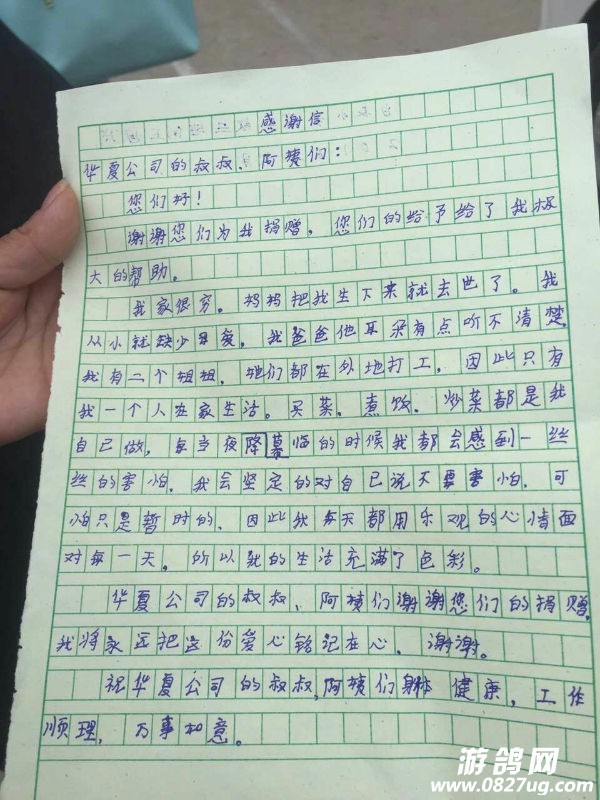 感谢信
华夏公司的叔叔、阿姨们:
您们好!
谢谢您们为我捐赠,您们的给予给了我极
大的帮助。
我家很穷。妈妈把我生下来就去世了。我
从小就缺少母爱,我爸爸他耳朵有点听不清楚,
我有二个姐姐,她们都在外地打工,因此只有
我一个人在家生活。买菜,煮饭,炒菜都是我
自己做,每当夜降幕临的时候我都会感到一丝
丝的害怕,我会坚定的对自己说不要害怕,可
怕只是暂时的,因此我每天都用乐观的心情面
对每一天,所以我的生活充满了色彩。
华夏公司的叔叔、阿姨们谢谢您们的捐赠,
我将永远把这份爱心铭记在心,谢谢。
祝华夏公司的叔叔,阿姨们身体健康,工作
顺理,万事如意。
游鸽网
www.0827ug.com